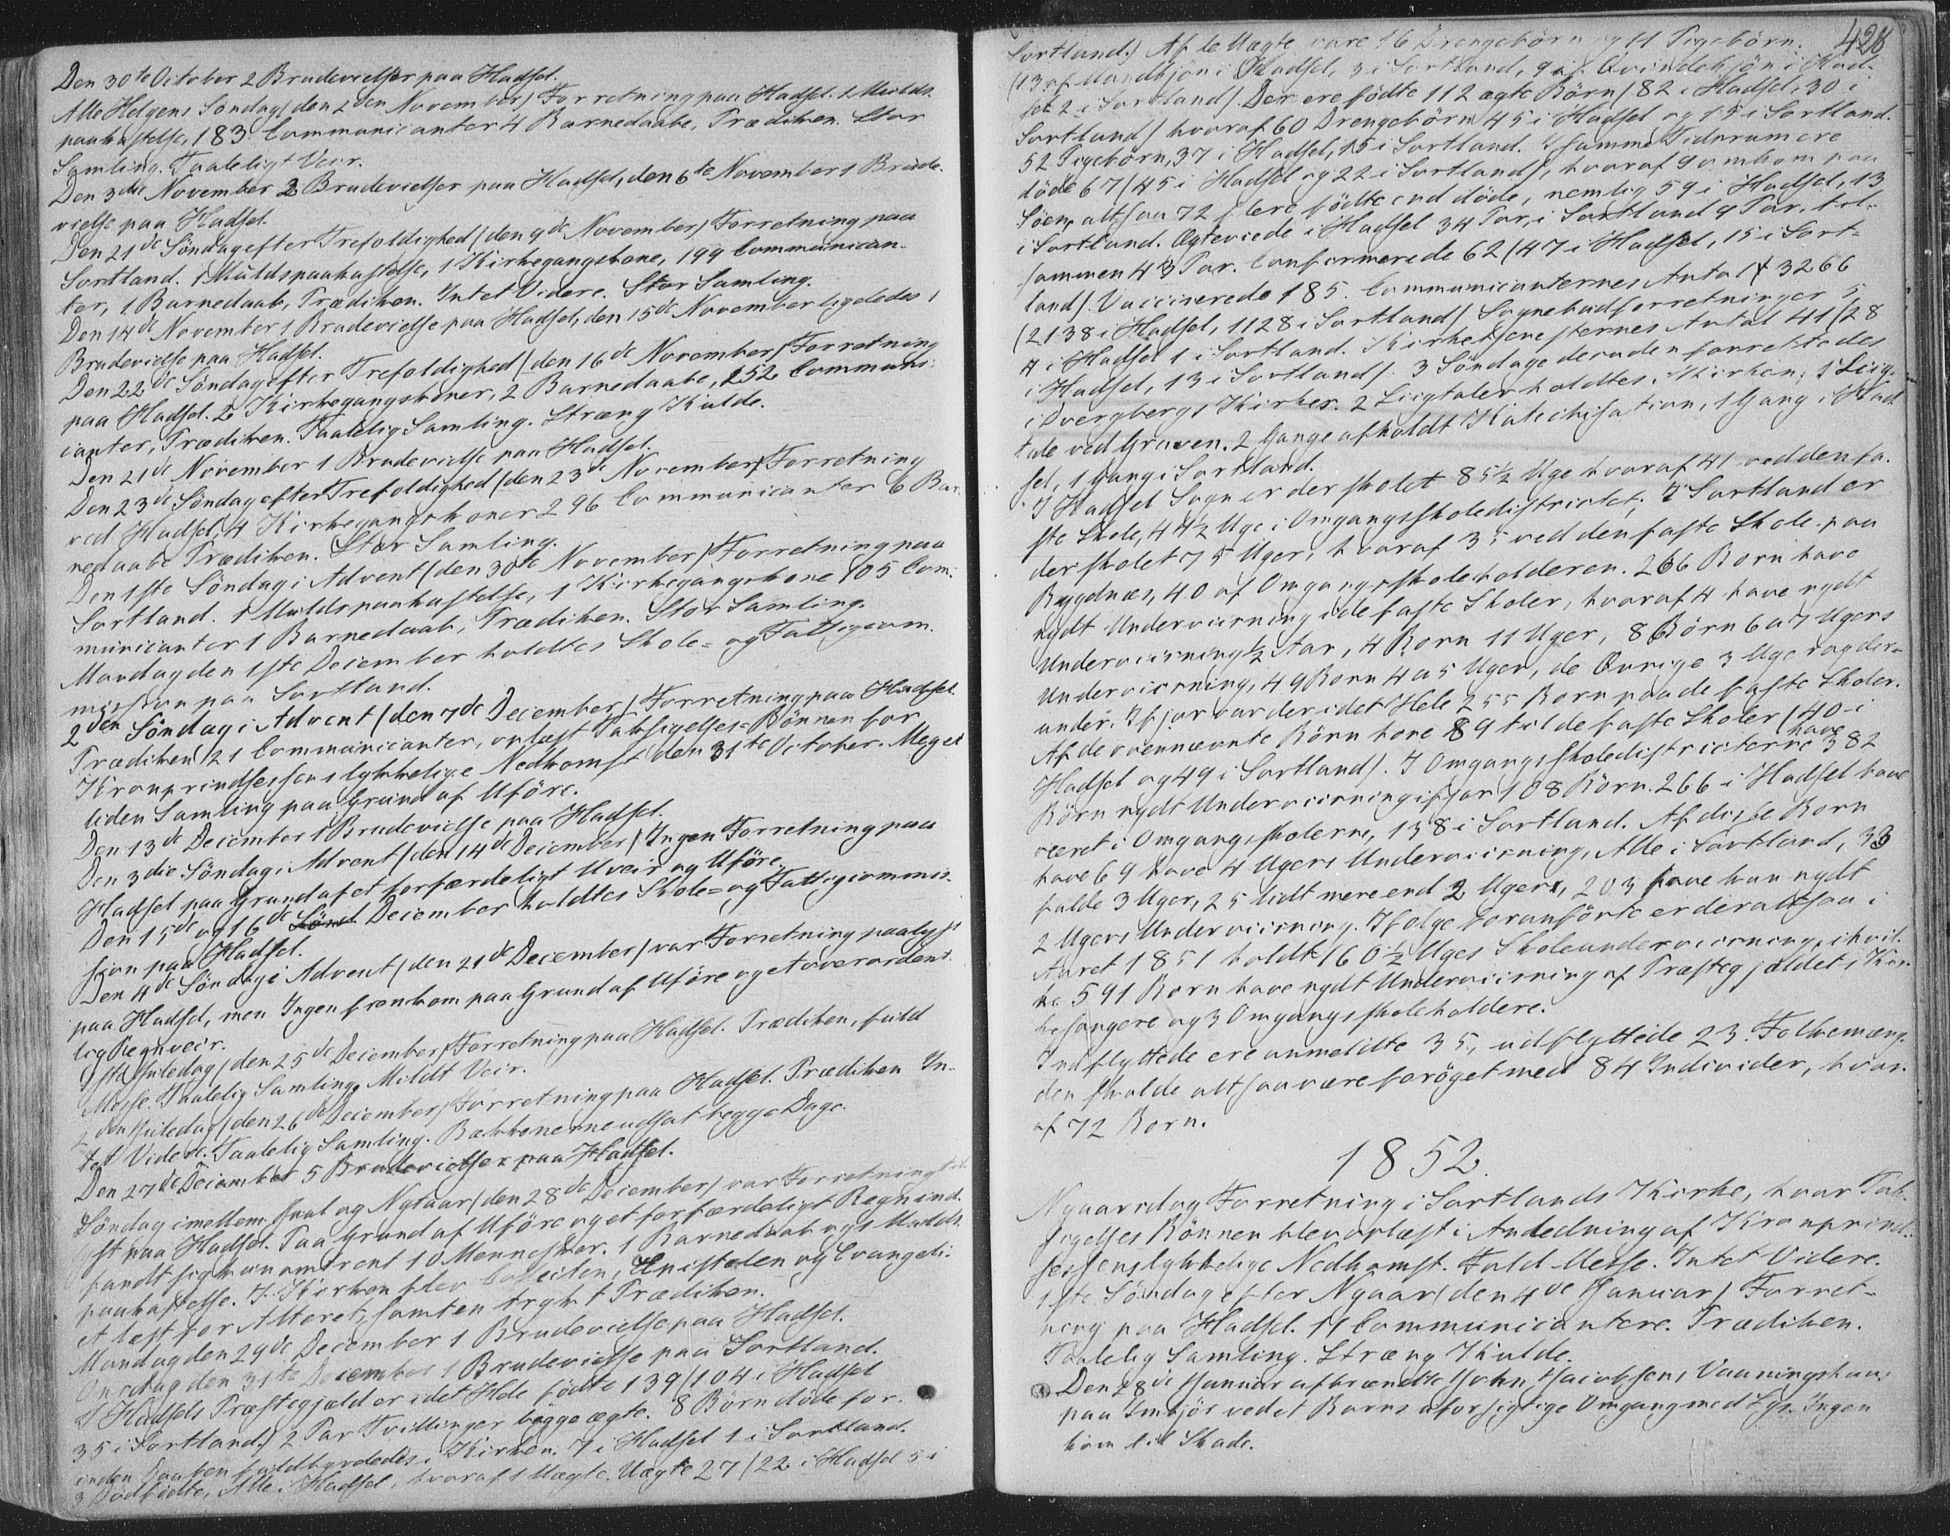 Den 30te October 2 Brudevielser paa Hadsel.
Alle Helgens Søndag (den 2den November) Forretning paa Hadsel. 1 Mulds-
paakastelse, 183 Communicanter 4 Barnedaabe, Prædiken. Stor
Samling. Taaleligt Veir.
Den 3die November 2 Brudevielser paa Hadsel, den 6te November 1 Brude-
vielse paa Hadsel.
Den 21de Søndag efter Trefoldighed (den 9de November) Forretning paa
Sortland. 1 Muldspaakastelse, 1 Kirkegangskone, 199 Communican-
ter, 1 Barnedaab, Prædiken. Intet Videre. Stor Samling.
Den 14de November 1 Brudevielse paa Hadsel, den 15de November ligeledes 1
Brudevielse paa Hadsel.
Den 22de Søndag efter Trefoldighed (den 16de November) Forretning
paa Hadsel. 2 Kirkegangskoner, 2 Barnedaabe, 252 Communi-
canter, Prædiken. Taalelig Samling. Stræng Kulde.
Den 21de November 1 Brudevielse paa Hadsel.
Den 23de Søndag efter Trefoldighed (den 23de November) Forretning
ved Hadsel, 4 Kirkegangskoner 296 Communicanter 6 Bar-
nedaabe Prædiken. Stor Samling.
Den 1ste Søndag i Advent (den 30te November) Forretning paa
Sortland. 1 Muldspaakastelse, 1 Kirkegangskone 105 Com-
municanter 1 Barnedaab, Prædiken. Stor Samling.
Mandag den 1ste December holdtes Skole- og Fattigcom-
mission paa Sortland.
2den Søndag i Advent (den 7de December) Forretning paa Hadsel.
Prædiken 121 Communicanter, oplæst Taksigelses-Bønnen for
Kronprindsessens lykkelige Nedkomst den 31te October. Meget
liden Samling paa Grund af Uføre.
Den 13de December 1 Brudevielse paa Hadsel.
Den 3die Søndag i Advent (den 14de December) Ingen Forretning paa
Hadsel paa Grund af et forfærdeligt Uveir og Uføre.
Den 15de og 16de Sönd December holdtes Skole- og Fattigcommis-
sion paa Hadsel.
Den 4de Søndag i Advent (den 21de December) var Forretning paalyst
paa Hadsel, men Ingen fremkom paa Grund af Uføre og et overordent-
lig Regnveir.
1ste Juledag (den 25de December) Forretning paa Hadsel. Prædiken, fuld
Messe. Taalelig Samling. Mildt Veir.
2den Juledag (den 26de December) Forretning paa Hadsel. Prædiken In-
tet Videre. Taalelig Samling. Bækkenerne udsat begge Dage.
Den 27de December 5 Brudevielser paa Hadsel.
Søndag imellem Juul og Nytaar (den 28de December) var Forretning
lyst paa Hadsel. Paa Grund af Uføre og et forfærdeligt Regn ind-
fandt sig kun omtrent 10 Mennesker. 1 Barnedaab og 1 Mulds-
paakastelse. I Kirken blev Collecten, Epistelen og Evangeli-
et læst for Alteret, samt en trykt Prædiken.
Mandag den 29de December 1 Brudevielse paa Hadsel.
Onsdag den 31te December 1 Brudevielse paa Sortland.
I Hadsels Præstegjæld er i det Hele fødte 139 (104 i Hadsel
35 i Sortland) 2 Par Tvillinger begge ægte. 8 Børn døde for-
inden Daaben fuldbyrdedes i Kirken. 7 i Hadsel 1 i Sortland.
3 Dødfødte, Alle i Hadsel, hvoraf 1 Uægte. Uægte 27 (22 i Hadsel 5 i
428
Sortland.) Af de Uægte vare 16 Drengebørn og 11 Pigebørn.
(13 af Mandkjön i Hadsel, 3 i Sortland, 9 af Qvindekjön i Had-
sel 2 i Sortland). Der ere fødte 112 ægte Børn (82 i Hadsel, 30 i
Sortland) hvoraf 60 Drengebørn 45 i Hadsel og 15 i Sortland.
52 Pigebørn, 37 i Hadsel, 15 i Sortland. I samme Tidsrum ere
døde 67 (45 i Hadsel og 22 i Sortland), hvoraf 9 omkom paa
Søen, altsaa 72 flere fødte end døde, nemlig 59 i Hadsel, 13
i Sortland. Ægteviede i Hadsel 34 Par, i Sortland 9 Par, til-
sammen 43 Par. Confirmerede 62 (47 i Hadsel, 15 i Sort-
land). Vaccinerede 185. Communicanternes Antal 3266
(2138 i Hadsel, 1128 i Sortland) Sognebudsforretninger 5
4 i Hadsel 1 i Sortland. Kirketjenesternes Antal 41 (28
i Hadsel, 13 i Sortland). 3 Søndage desuden forrettedes
i Dverbergs Kirker. 2 Liigtaler holdtes i Kirken, 1 Liig-
tale ved Graven. 2 Gange afholdt Katechisation, 1 Gang i Had-
sel, 1 Gang i Sortland.
I Hadsel Sogn er der skolet 85½ Uge hvoraf 41 ved den fa-
ste Skole, 44½ Uge i Omgangsskoledistrictet; I Sortland er
der skolet 75 Uger, hvoraf 35 ved den faste Skole paa
Bygdnæs, 40 af Omgangsskoleholderen. 266 Børn have
nydt Underviisning i de faste Skoler, hvoraf 4 have nydt
Underviisning ½ Aar, 4 Børn 11 Uger, 8 Børn 6 a 7 Ugers
Underviisning, 49 Børn 4 a 5 Uger, de Øvrige 3 Uger og der-
under. Ifjor var der i det Hele 255 Børn paa de faste Skoler.
Af de ovennævnte Børn høre 89 til de faste Skoler (40 i
Hadsel og 49 i Sortland). I Omgangsskoledistricterne have 382
Børn nydt Underviisning ifjor 108 Børn. 266 i Hadsel have
været i Omgangsskolerne, 138 i Sortland. Af disse Børn
have 69 have 4 Ugers Underviisning, Alle i Sortland, 33
fulde 3 Uger, 25 lidt mere end 2 Uger, 203 have kun nydt
2 Ugers Underviisning. Ifølge Foranførte er der altsaa i
Aaret 1851 holdt 160½ Uges Skoleunderviisning, i hvil-
ke 591 Børn have nydt Underviisning af Præstegjældets Kir-
kesangere og 3 Omgangsskoleholdere.
Indflyttede ere anmeldte 35, udflyttede 23. Folkemæng-
den skulde altsaa være forøget med 84 Individer, hvor-
af 72 Børn.
1852.
Nyaarsdag Forretning i Sortlands Kirke, hvor Tak-
sigelses Bönnen blev oplæst i Anledning af Kronprind-
sessens lykkelige Nedkomst. Fuld Messe. Intet Videre.
1ste Søndag efter Nyaar (den 4de Januar) Forret-
ning paa Hadsel. 11 Communicantere. Prædiken.
Taalelig Samling. Stræng Kulde.
Den 8de Januar afbrændte John Jacobsens Vaaningshuus
paa ved et Barns uforsigtige Omgang med Lys. Ingen
kom til Skade.